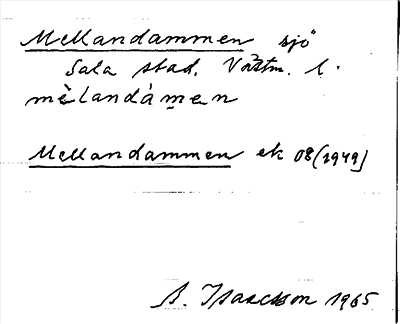 Mellandammen sjö
Sala stad. Västm. l.
mèlandámen
Mellandammen ek 08 (1949)
A. Isaacsson 1965